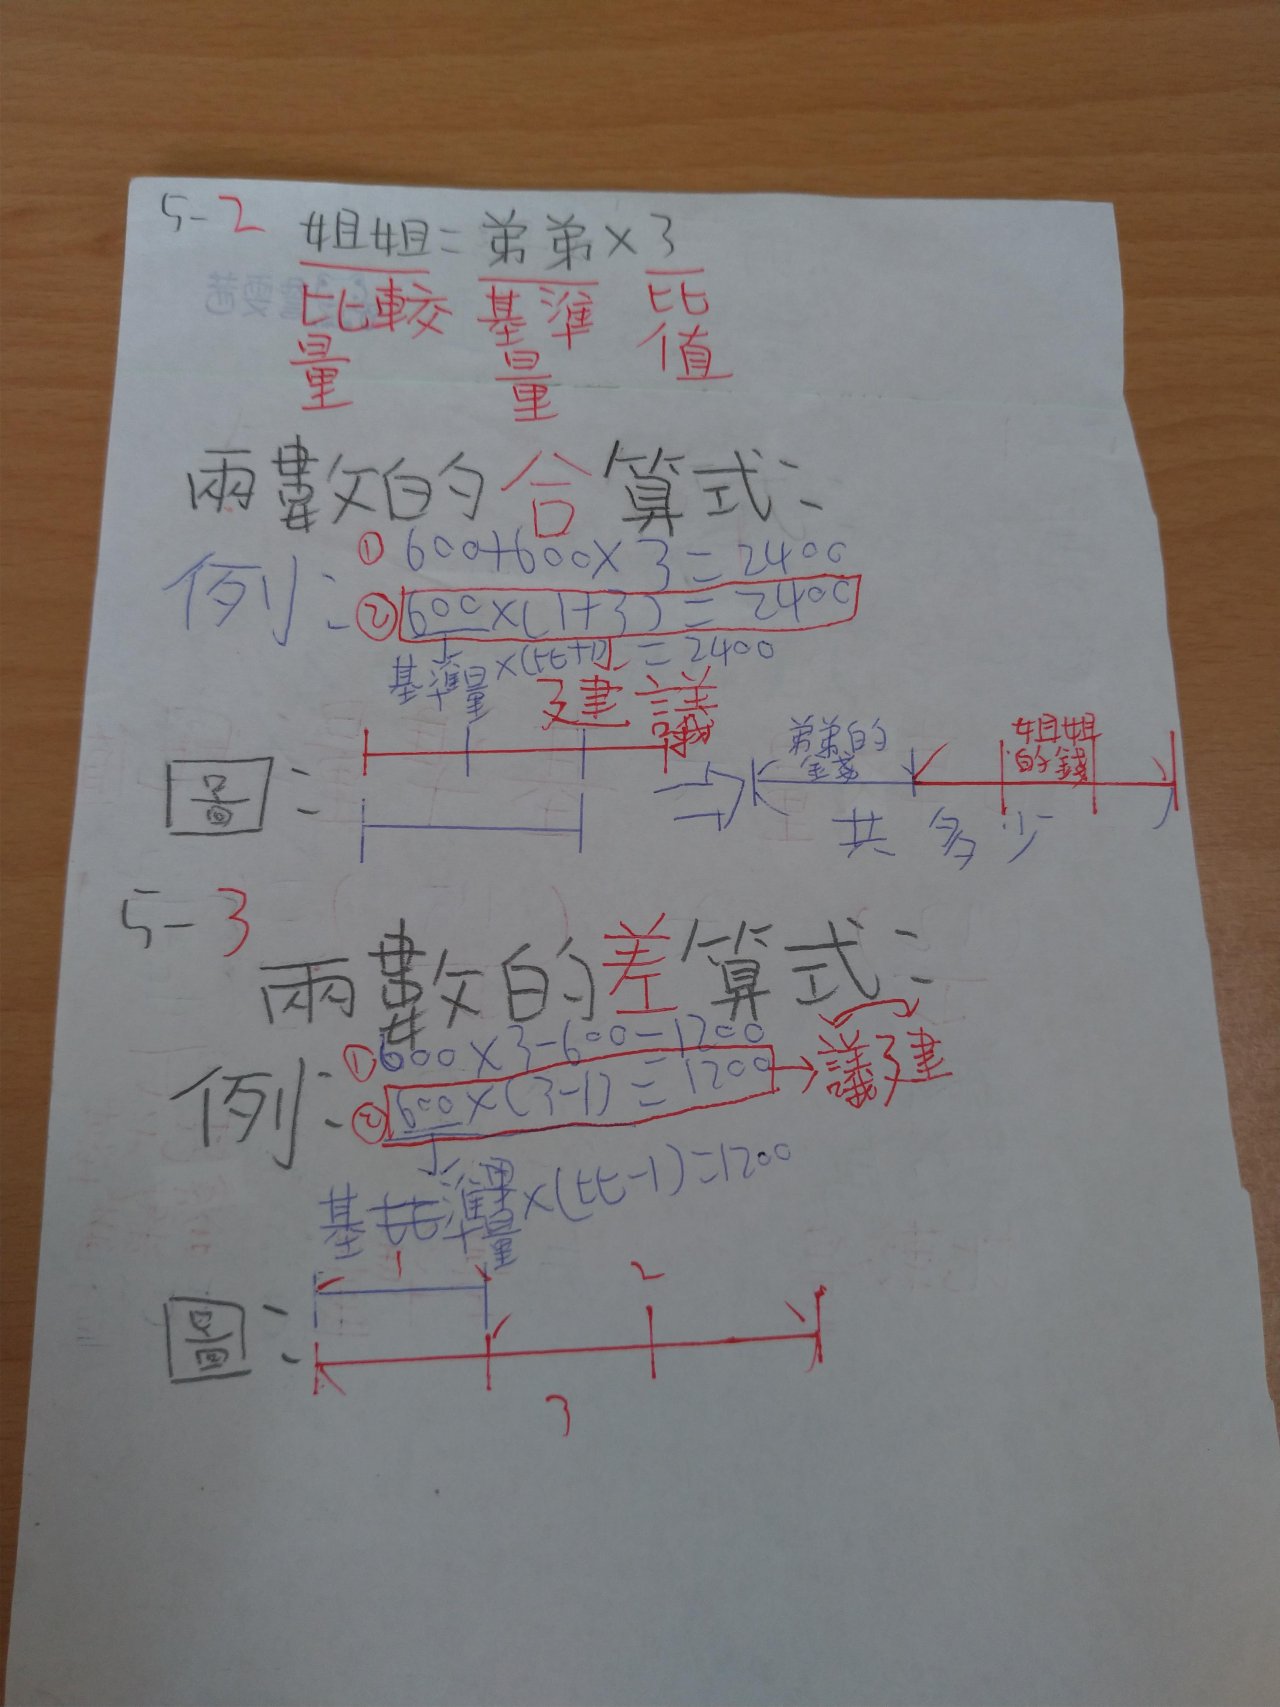 5-2
姐姐=弟弟×3
比較量 基準量 比值
兩數的合算式:
例:
① 600+600×3=2400
② 600×(1+3)=2400
基準量×(比+1)=2400
建議
圖:
弟弟的金錢
姐姐的錢
共多少
5-3
兩數的差算式:
例:
① 600×3-600=1200
② 600×(3-1)=1200→議建
基準量×(比-1)=1200
圖:
1
2
3